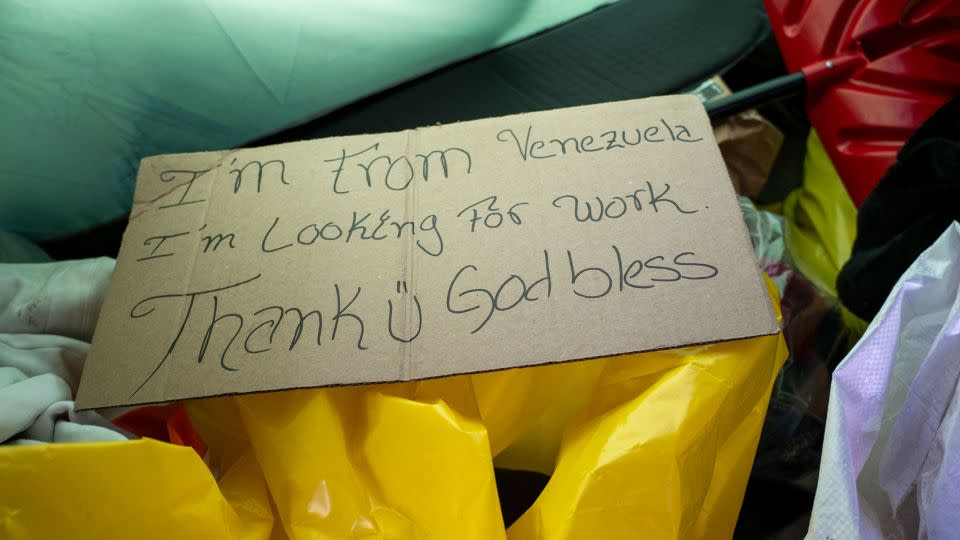 I'm from Venezuela
I'm Looking For work.
Thank ü God bless